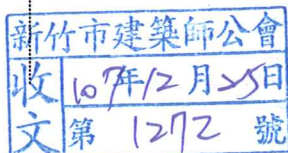 新竹市建築師公會
收文
107年12月25日
第 1272 號